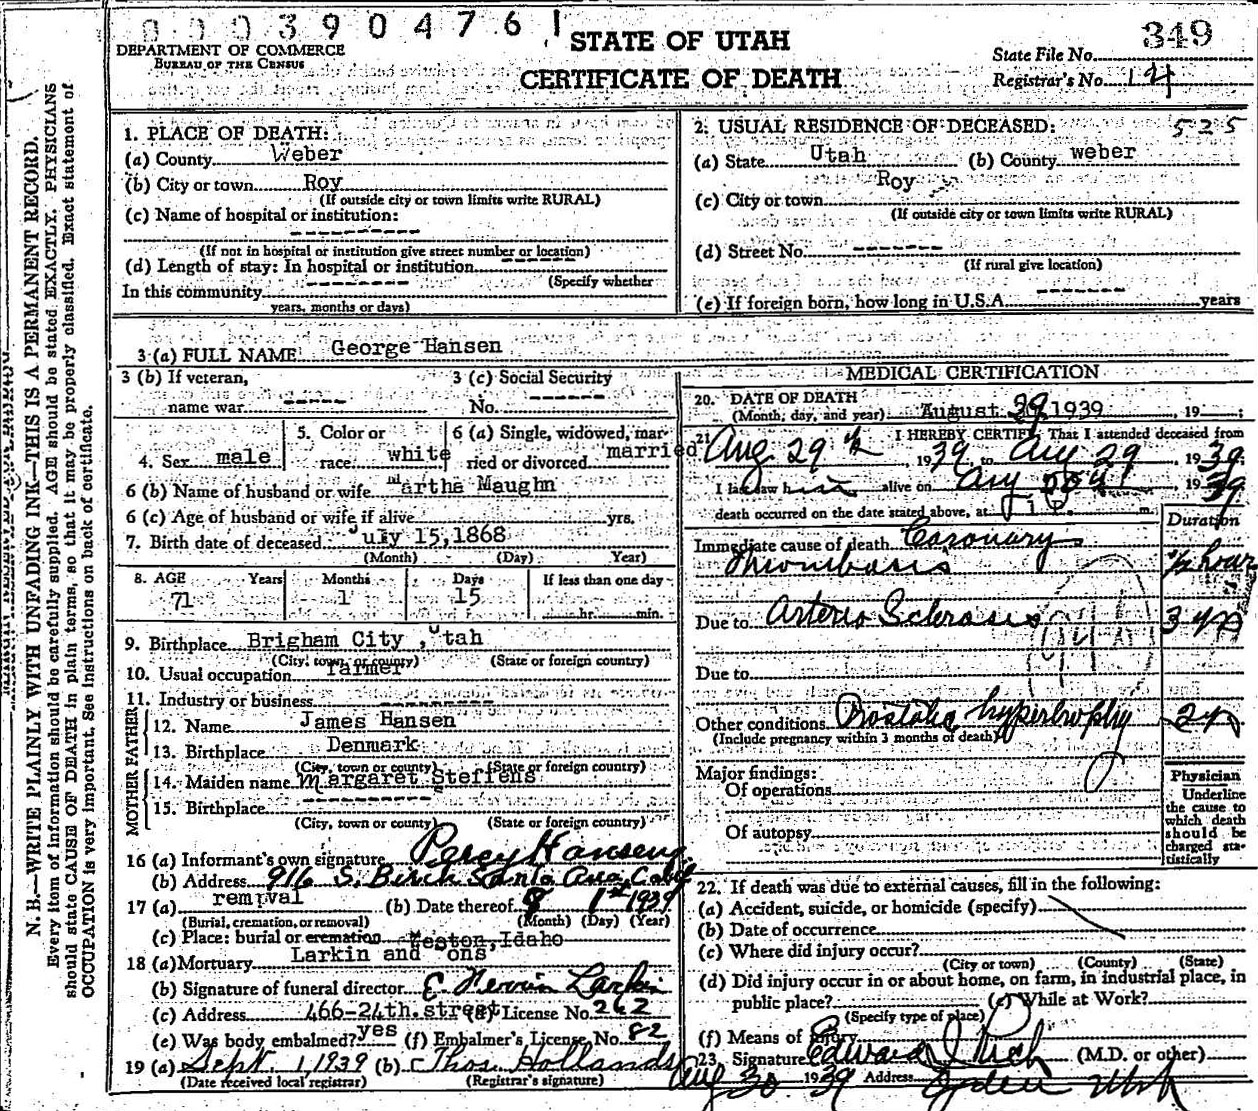 000390476 1
DEPARTMENT OF COMMERCE
BUREAU OF THE CENSUS
STATE OF UTAH
CERTIFICATE OF DEATH
349
State File No.
Registrar's No. 14
N. B.—WRITE PLAINLY WITH UNFADING INK—THIS IS A PERMANENT RECORD.
Every item of information should be carefully supplied. AGE should be stated EXACTLY. PHYSICIANS
should state CAUSE OF DEATH in plain terms, so that it may be properly classified. Exact statement of
OCCUPATION is very important. See instructions on back of certificate.
1. PLACE OF DEATH:
(a) County Weber
(b) City or town Roy
(If outside city or town limits write RURAL)
(c) Name of hospital or institution:
---------
(If not in hospital or institution give street number or location)
(d) Length of stay: In hospital or institution -------
(Specify whether
In this community -------
years, months or days)
2. USUAL RESIDENCE OF DECEASED: 525
(a) State Utah (b) County weber
(c) City or town Roy
(If outside city or town limits write RURAL)
(d) Street No. -------
(If rural give location)
(e) If foreign born, how long in U.S.A. ------- years
3 (a) FULL NAME George Hansen
3 (b) If veteran,
name war -----
3 (c) Social Security
No. ------
4. Sex male
5. Color or
race white
6 (a) Single, widowed, mar-
ried or divorced married
6 (b) Name of husband or wife Martha Maughn
6 (c) Age of husband or wife if alive yrs.
7. Birth date of deceased July 15, 1868
(Month) (Day) Year)
8. AGE Years Months Days If less than one day
71 1 15 hr. min.
9. Birthplace Brigham City , Utah
(City, town or county) (State or foreign country)
10. Usual occupation farmer
11. Industry or business ---------
FATHER
12. Name James Hansen
13. Birthplace Denmark
(City, town or county) (State or foreign country)
MOTHER
14. Maiden name Margaret Steffens
15. Birthplace ---------
(City, town or county) (State or foreign country)
16 (a) Informant's own signature Percy Hansen
(b) Address 916 S. Birch Santa Ana, Calif
17 (a) removal (b) Date thereof 1st 1939
(Burial, cremation, or removal) (Month) (Day) (Year)
(c) Place: burial or cremation Weston, Idaho
18 (a) Mortuary Larkin and Sons,
(b) Signature of funeral director Larkin
(c) Address 466-24th.street (d) License No. 262
(e) Was body embalmed? yes (f) Embalmer's License No. 82
19 (a) Sept. 1, 1939 (b) Thos. Hollands
(Date received local registrar) (Registrar's signature)
MEDICAL CERTIFICATION
20. DATE OF DEATH
(Month, day, and year) August 29, 1939 , 19 ;
21. I HEREBY CERTIFY, That I attended deceased from
Aug 29th , 1939 to Aug 29 , 1939;
I last saw him alive on Aug 1939
death occurred on the date stated above, at m.
Duration
Immediate cause of death Coronary
Thrombosis 1/2 hour
Due to Arterio Sclerosis 3 yrs
94b
Due to
Other conditions Prostatic hypertrophy 2 yrs
(Include pregnancy within 3 months of death)
Major findings:
Of operations
Of autopsy
Physician
Underline
the cause to
which death
should be
charged sta-
tistically
22. If death was due to external causes, fill in the following:
(a) Accident, suicide, or homicide (specify)
(b) Date of occurrence
(c) Where did injury occur?
(City or town) (County) (State)
(d) Did injury occur in or about home, on farm, in industrial place, in
public place? (e) While at Work?
(Specify type of place)
(f) Means of Injury
23. Signature Edward I Rich (M.D. or other)
Aug 30 1939 Address Ogden Utah